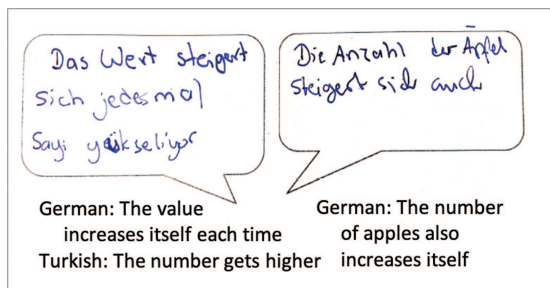 Das Wert steigert
sich jedesmal
Sayi yükseliyor
Die Anzahl der Äpfel
steigert sich auch
German: The value
increases itself each time
Turkish: The number gets higher
German: The number
of apples also
increases itself